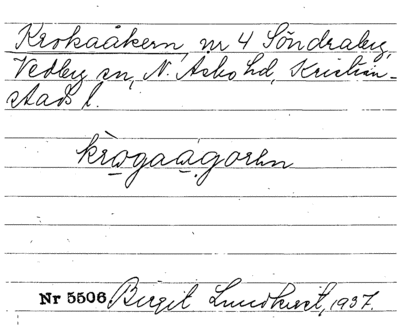 Krokaåkern, nr 4 Söndraby,
Vedby sn, N. Åsbo hd, Kristian-
stads l.
krògaàgorən
Nr 5506 Birgit Lundkvist, 1937.